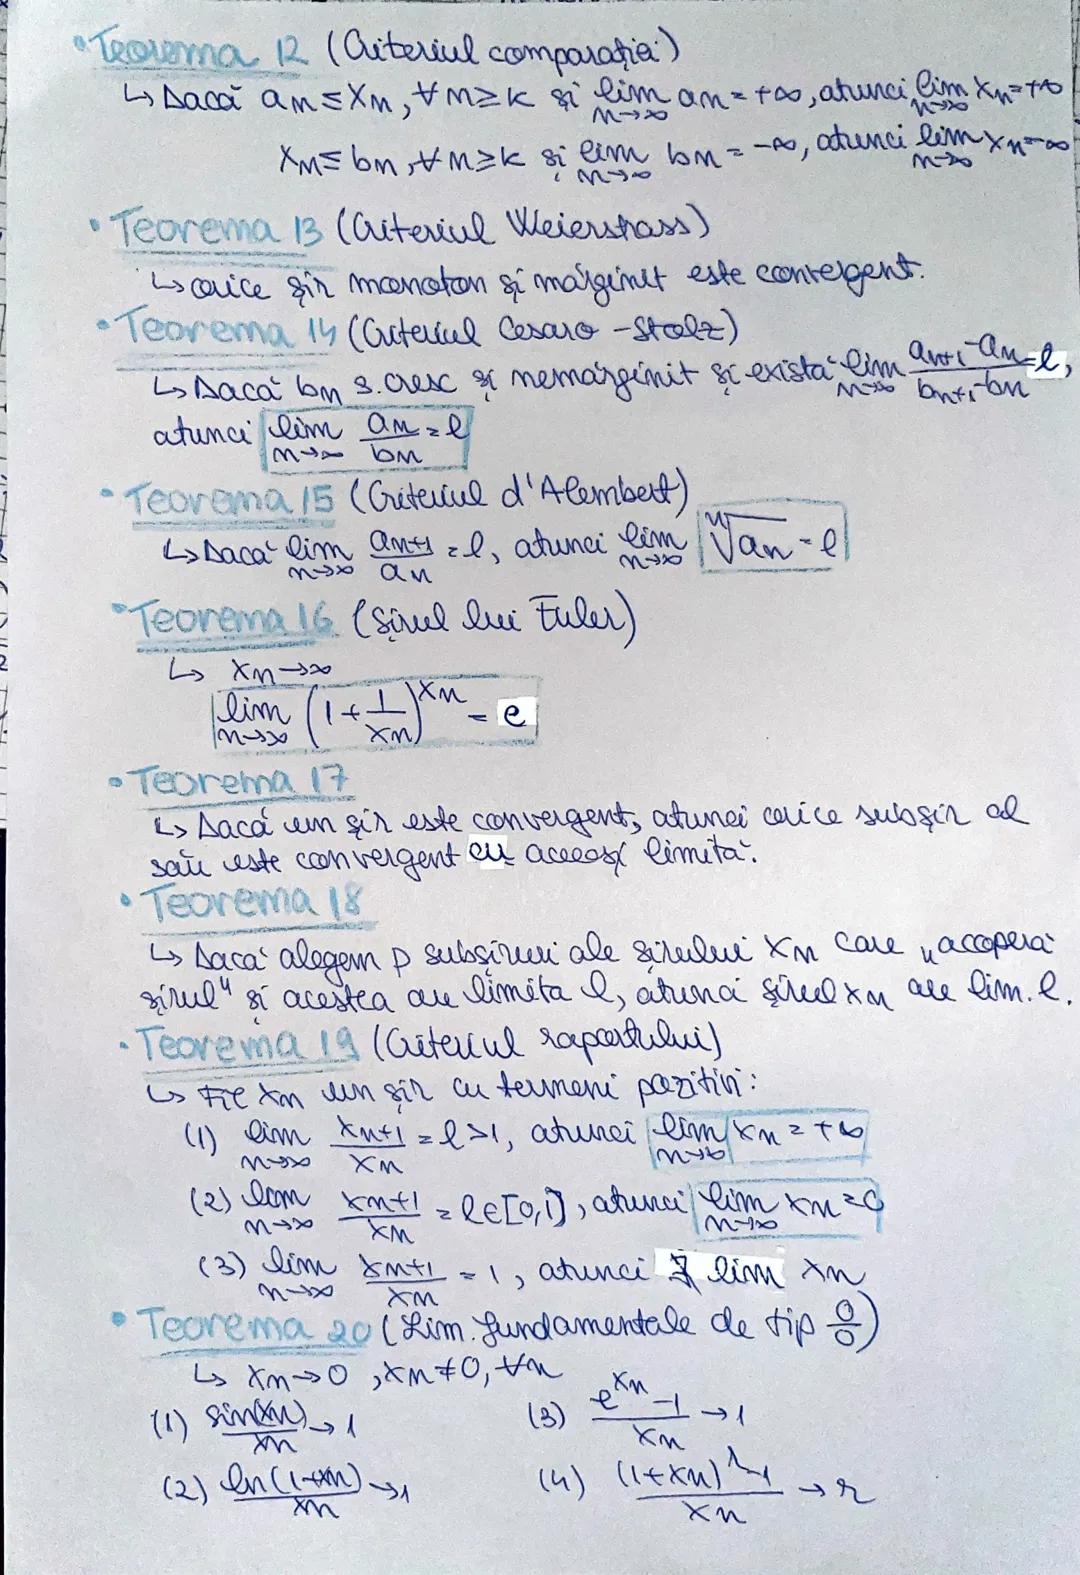 • Teorema 12 (Criteriul comparației)
↳ Dacă an ≤ xn, ∀ n ≥ k și lim n→∞ an = +∞, atunci lim n→∞ xn = +∞
xn ≤ bn, ∀ n ≥ k și lim n→∞ bn = -∞, atunci lim n→∞ xn = -∞
• Teorema 13 (Criteriul Weierstrass)
↳ orice șir monoton și mărginit este convergent.
• Teorema 14 (Criteriul Cesaro - Stolz)
↳ Dacă bn s. cresc și nemărginit și există lim n→∞ (an+1 - an)/(bn+1 - bn) = l,
atunci lim n→∞ an/bn = l
• Teorema 15 (Criteriul d'Alembert)
↳ Dacă lim n→∞ an+1/an = l, atunci lim n→∞ ⁿ√an = l
• Teorema 16 (Șirul lui Euler)
↳ xn → ∞
lim n→∞ (1 + 1/xn)^xn = e
• Teorema 17
↳ Dacă un șir este convergent, atunci orice subșir al
său este convergent cu aceeași limită.
• Teorema 18
↳ Dacă alegem p subșiruri ale șirului xn care „accoperă
șirul" și acestea au limita l, atunci șirul xn are lim. l.
• Teorema 19 (Criteriul raportului)
↳ Fie xn un șir cu termeni pozitivi:
(1) lim n→∞ xn+1/xn = l > 1, atunci lim n→∞ xn = +∞
(2) lim n→∞ xn+1/xn = l ∈ [0,1), atunci lim n→∞ xn = 0
(3) lim n→∞ xn+1/xn = 1, atunci ∄ lim xn
• Teorema 20 (Lim. fundamentale de tip 0/0)
↳ xn → 0, xn ≠ 0, ∀n
(1) sin(xn)/xn → 1 (3) (e^xn - 1)/xn → 1
(2) ln(1+xn)/xn → 1 (4) ((1+xn)^r - 1)/xn → r